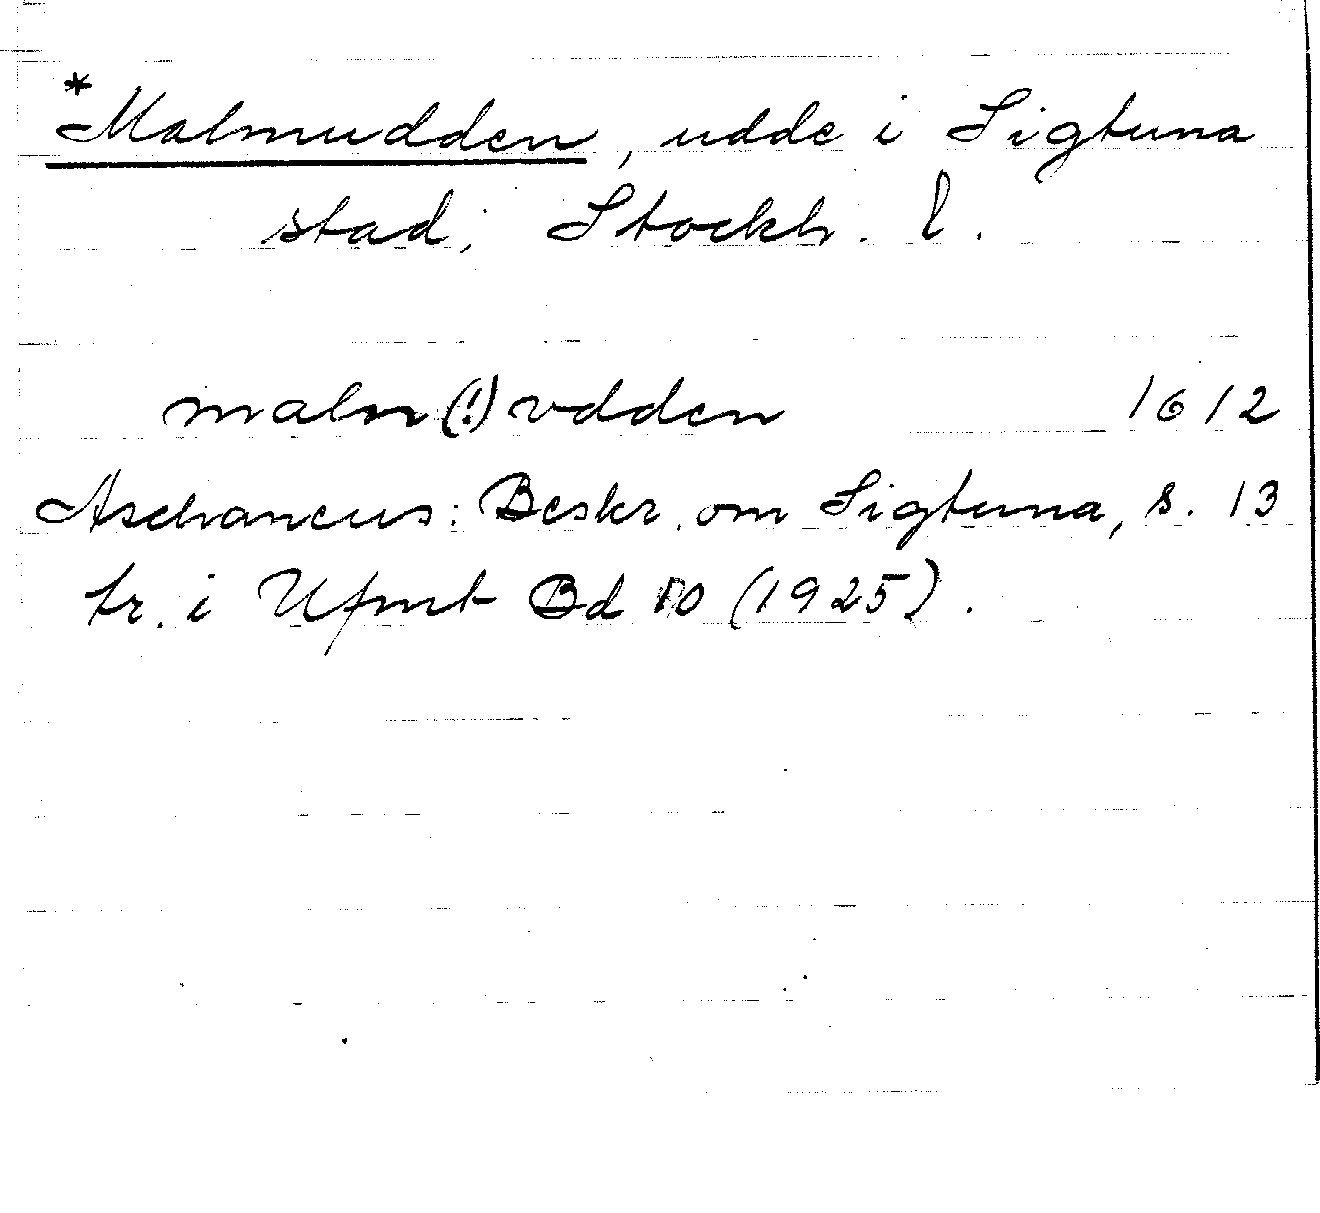 *Malmudden, udde i Sigtuna
stad, Stockh. l.
maln(!)vdden 1612
Aschaneus: Beskr. om Sigtuna, s. 13
tr. i Ufmt Bd 10 (1925).